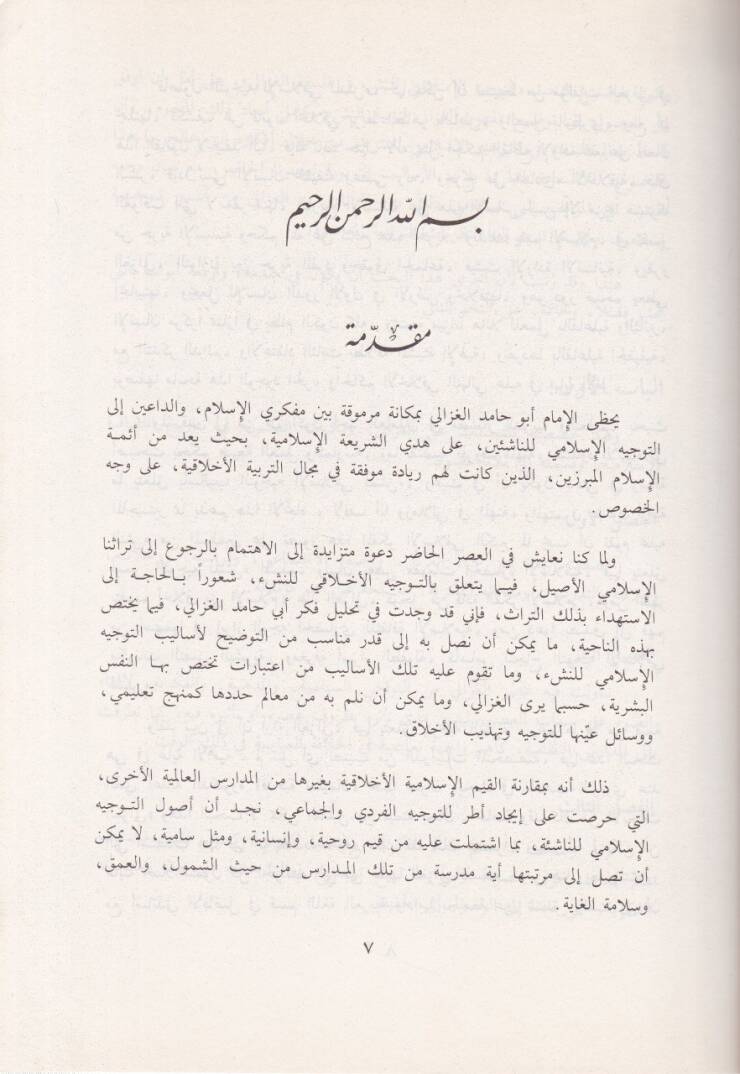 بسم الله الرحمن الرحيم
مقدّمة
يحظى الإمام أبو حامد الغزالي بمكانة مرموقة بين مفكري الإسلام، والداعين إلى
التوجيه الإسلامي للناشئين، على هدي الشريعة الإسلامية، بحيث يعد من أئمة
الإسلام المبرزين، الذين كانت لهم ريادة موفقة في مجال التربية الأخلاقية، على وجه
الخصوص.
ولما كنا نعايش في العصر الحاضر دعوة متزايدة إلى الاهتمام بالرجوع إلى تراثنا
الإسلامي الأصيل، فيما يتعلق بالتوجيه الأخلاقي للنشء، شعوراً بالحاجة إلى
الاستهداء بذلك التراث، فإني قد وجدت في تحليل فكر أبي حامد الغزالي، فيما يختص
بهذه الناحية، ما يمكن أن نصل به إلى قدر مناسب من التوضيح لأساليب التوجيه
الإسلامي للنشء، وما تقوم عليه تلك الأساليب من اعتبارات تختص بها النفس
البشرية، حسبما يرى الغزالي، وما يمكن أن نلم به من معالم حددها كمنهج تعليمي،
ووسائل عيّنها للتوجيه وتهذيب الأخلاق.
ذلك أنه بمقارنة القيم الإسلامية الأخلاقية بغيرها من المدارس العالمية الأخرى،
التي حرصت على إيجاد أطر للتوجيه الفردي والجماعي، نجد أن أصول التوجيه
الإسلامي للناشئة، بما اشتملت عليه من قيم روحية، وإنسانية، ومثل سامية، لا يمكن
أن تصل إلى مرتبتها أية مدرسة من تلك المدارس من حيث الشمول، والعمق،
وسلامة الغاية.
٧